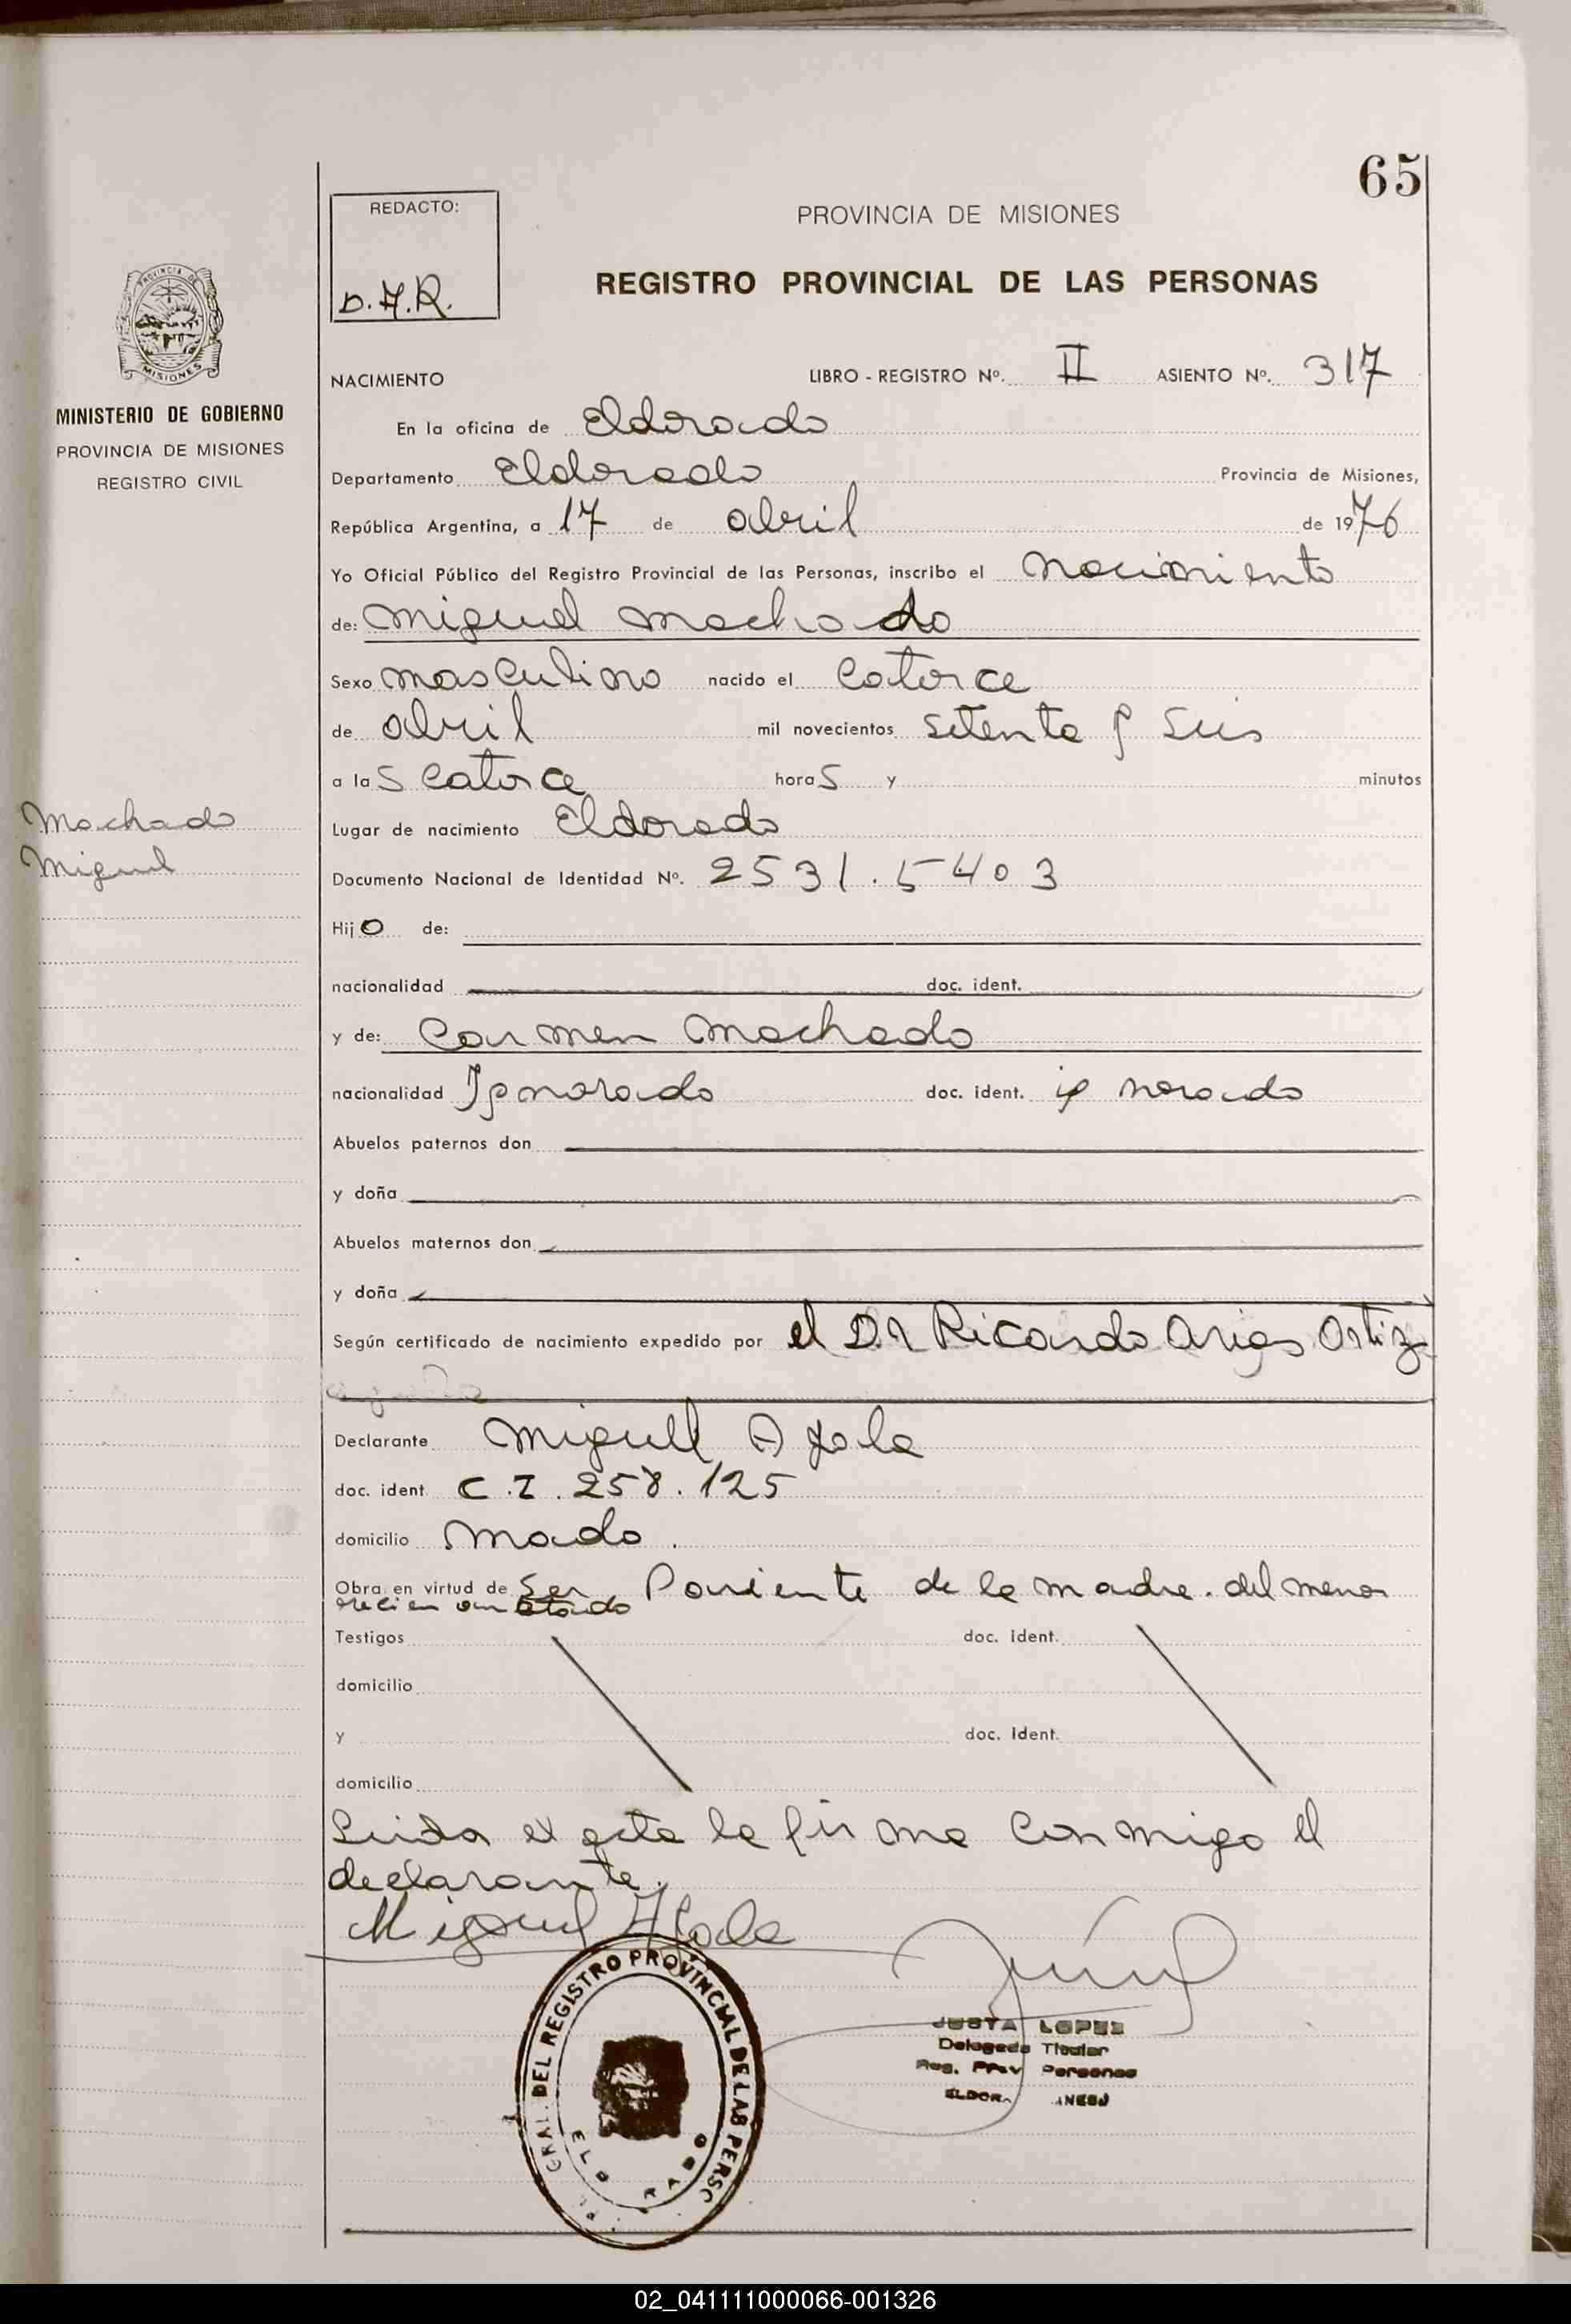 65
REDACTO:
D.A.R.
PROVINCIA DE MISIONES
REGISTRO PROVINCIAL DE LAS PERSONAS
PROVINCIA DE
MISIONES
MINISTERIO DE GOBIERNO
PROVINCIA DE MISIONES
REGISTRO CIVIL
NACIMIENTO LIBRO - REGISTRO Nº. II ASIENTO Nº. 317
En la oficina de Eldorado
Departamento Eldorado Provincia de Misiones,
República Argentina, a 17 de abril de 1976
Yo Oficial Público del Registro Provincial de las Personas, inscribo el nacimiento
de: Miguel Machado
Sexo masculino nacido el catorce
de abril mil novecientos setenta y seis
a las catorce horas y minutos
Machado
Miguel
Lugar de nacimiento Eldorado
Documento Nacional de Identidad Nº. 2531.5403
Hijo de:
nacionalidad doc. ident.
y de: Carmen Machado
nacionalidad Ignorado doc. ident. ignorado
Abuelos paternos don
y doña
Abuelos maternos don
y doña
Según certificado de nacimiento expedido por el D.r Ricardo Arias Ortiz
Declarante Miguel Ayala
doc. ident. C.I. 258.125
domicilio Mado.
Obra en virtud de ser Pariente de la madre. del menor
recien
Testigos doc. ident.
domicilio
y doc. ident.
domicilio
Leida el acta la firma conmigo el
declarante.
Miguel Ayala
GRAL. DEL REGISTRO PROVINCIAL DE LAS PERSO
ELD RADO
JUSTA LOPEZ
Delegada Titular
Reg. Prov Personas
ELDOR
02_041111000066-001326